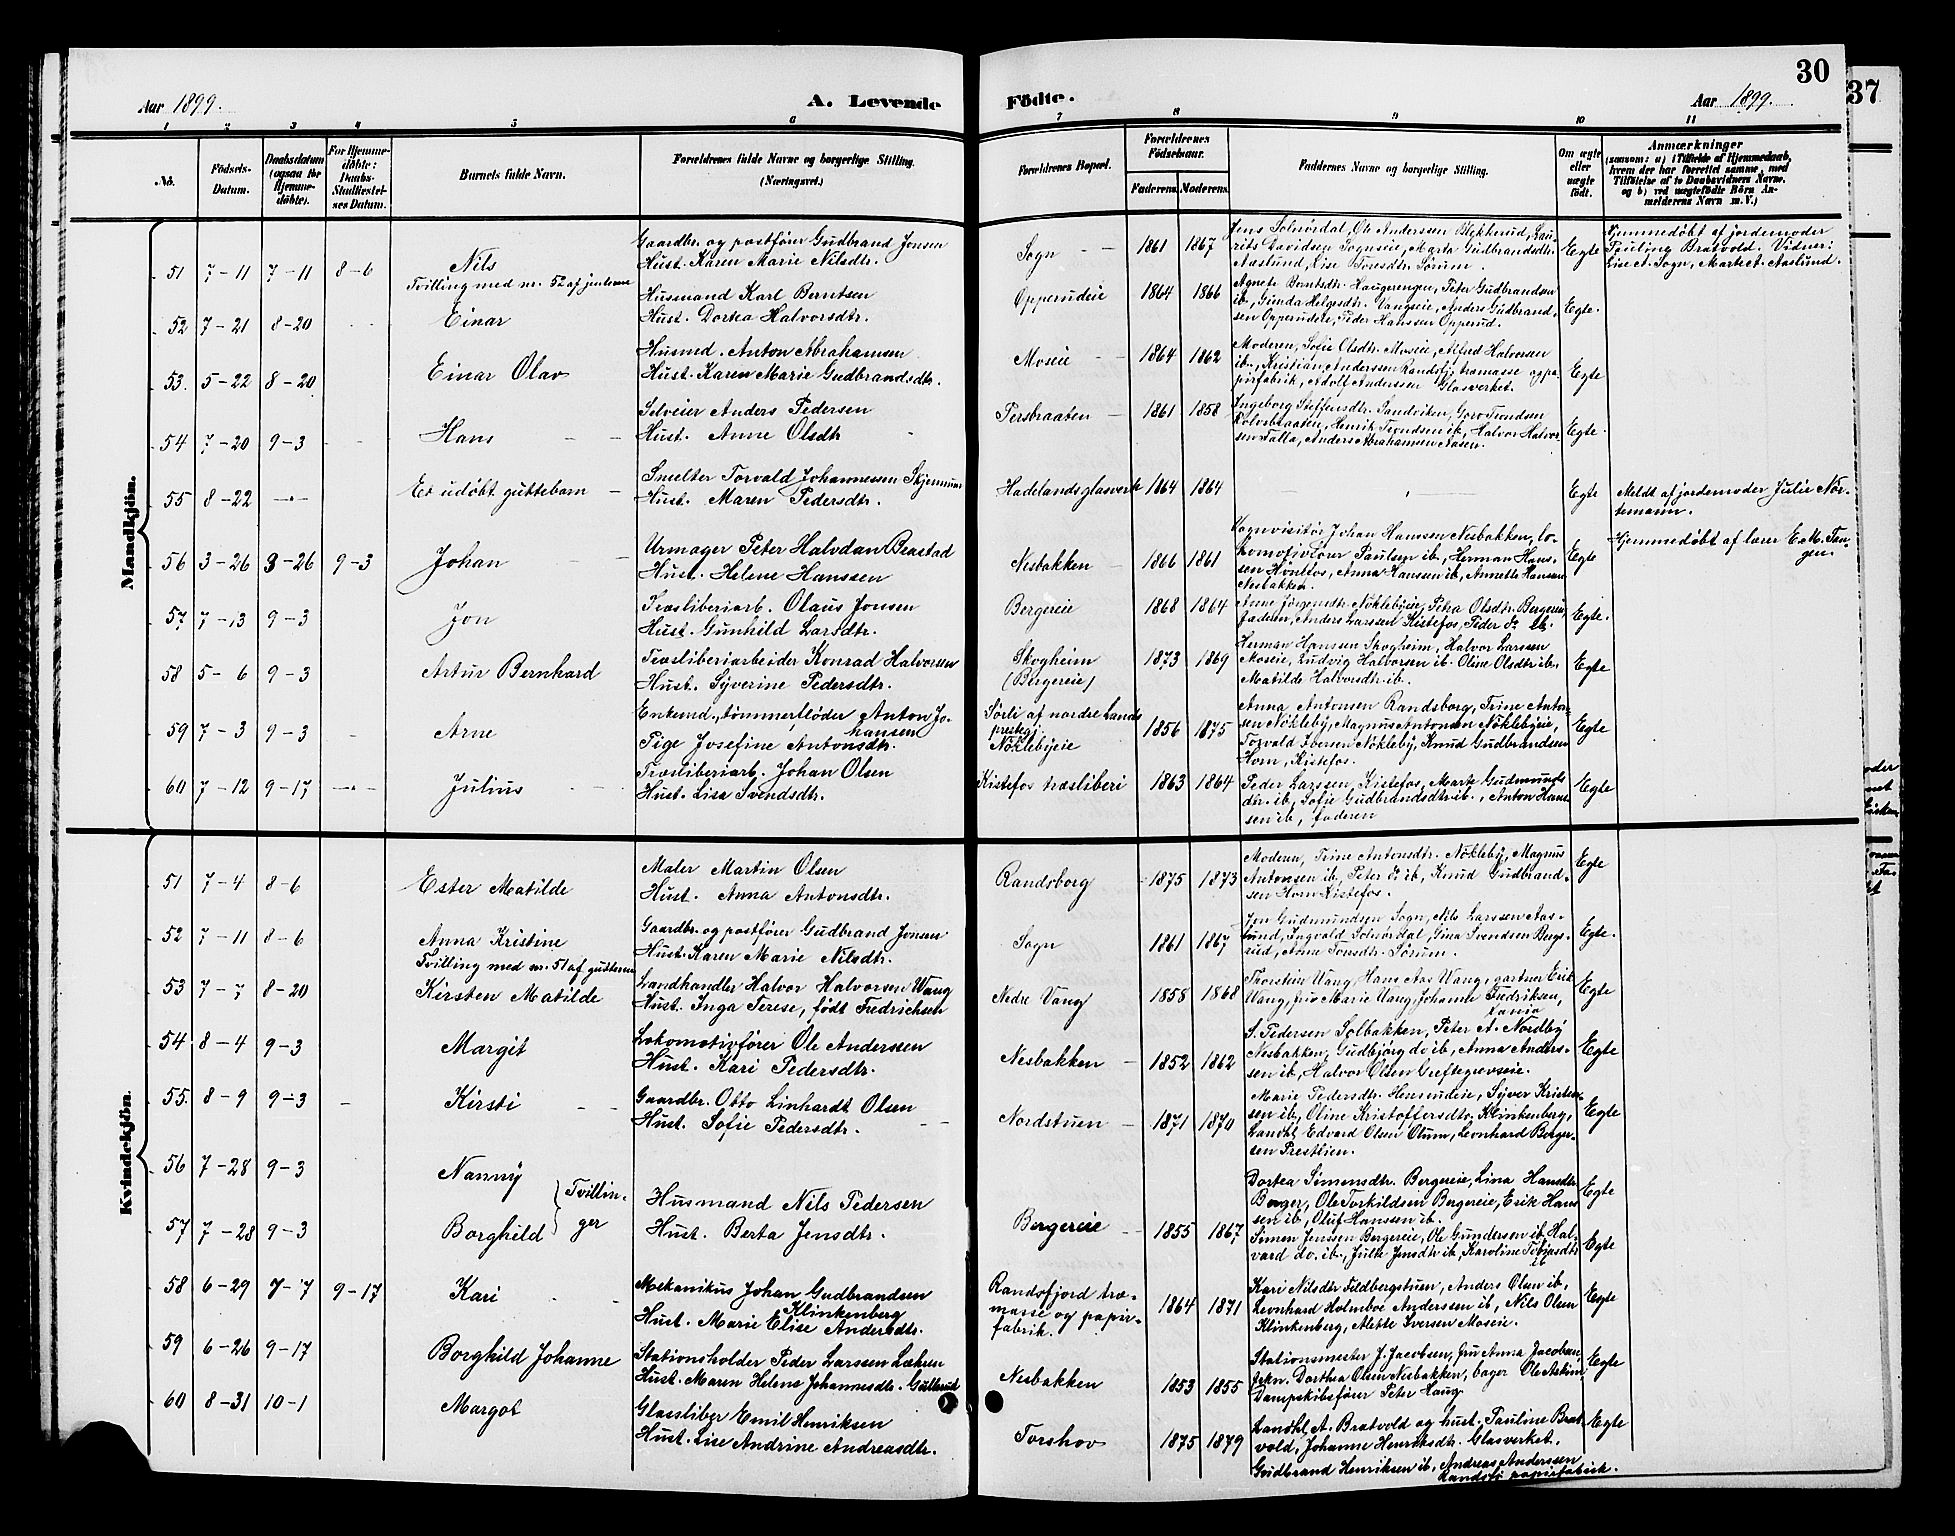 30
37
Aar 1899.
A. Levende
Födte.
Aar 1899.
1 2 3 4 5 6 7 8 9 10 11
No.
Födsels-
Datum.
Daabsdatum
(ogsaa for
Hjemme-
döbte).
For Hjemme-
döbte:
Daabs-
Stadfæstel-
ses Datum.
Barnets fulde Navn.
Forældrenes fulde Navne og borgerlige Stilling.
(Næringsvei.)
Forældrenes Bopæl.
Forældrenes
Födselsaar.
Faderens. Moderens.
Faddernes Navne og borgerlige Stilling.
Om ægte
eller
uægte
født.
Anmærkninger
(saasom: a) i Tilfælde af Hjemmedaab,
hvem der har forrettet samme, med
Tilføielse af to Daabsvidners Navne,
og b) ved uægtefödte Börn An-
melderens Navn m. V.)
Mandkjön.
51 7-11 7-11 8-6
Nils
Tvilling med nr. 52 af jenterne
Gaardbr. og postfører Gudbrand Jonsen
Hust. Karen Marie Nilsdtr.
Sogn
1861 1867
Jens Solnördal, Ole Anderssen Blekkerud, Lau-
rits Davidsen Sognseie, Marta Gudbrandsdtr.
Aaslund, Lise Tonsdtr. Sørum.
Egte
Hjemmedøbt af jordemoder
Pauline Bratvold. Vidner:
Lise A. Sogn, Marte A. Aaslund.
52 7-21 8-20
Einar
Husmand Karl Berntsen
Hust. Dortea Halvorsdtr.
Opperudeie
1864 1866
Agnete Berntsdtr. Haugerengen, Peter Gudbrandsen
ib., Gunda Helgesdtr. Vangseie, Anders Gudbrand-
sen Opperudeie, Peder Hanssen Opperud.
Egte.
53. 5-22 8-20
Einar Olav
Husmd. Anton Abrahamsen
Hust. Karen Marie Gudbrandsdtr.
Moseie
1864 1862
Moderen, Sofie Olsdtr. Moseie, Alfred Halvorsen
ib., Kristian Anderssen Randsfj. træmasse og pa-
pirfabrik, Adolf Anderssen Glasverket.
Egte
54 7-20 9-3
Hans
Selveier Anders Pedersen
Hust. Anne Olsdtr
Persbraaten
1861 1858
Ingeborg Steffensdtr. Sandviken, Goro Trondsen
Kolvsbraaten, Henrik Trondsen ib., Halvor Halvor-
sen Talla, Anders Abrahamsen Aasen.
Egte.
55 8-22
Et udøbt guttebarn
Smelter Torvald Johannessen Skjennum
Hust. Maren Pedersdtr.
Hadelands glasverk
1864 1864
Egte
Meldt af jordemoder Julie Nor-
temann.
56 3-26 3-26 9-3
Johan
Urmager Peter Halvdan Beastad
Hust. Helene Hanssen
Nesbakken
1866 1861
Vognvisitør Johan Hanssen Nesbakken, lo-
komotivfører Paulsen ib., Herman Hans-
sen Hønefos, Anna Hanssen ib., Annette Hansen
Nesbakken.
Egte
Hjemmedøbt af lærer E. M. Tan-
gen.
57. 7-13 9-3
Jon
Træsliberiarb. Olaus Jonsen
Hust. Gunhild Larsdtr.
Bergereie
1868 1864
Anne Jørgensdtr. Nøklebyeie, Petra Olsdtr. Bergereie,
faderen, Anders Larssen Kistefos, Peder do ib.
Egte.
58 5-6 9-3
Artur Bernhard
Træsliberiarbeider Konrad Halvorsen
Hust. Syverine Pedersdtr.
Skogheim
(Bergereie)
1873 1869
Herman Hanssen Skogheim, Halvor Larssen
Moseie, Ludvig Halvorsen ib. Oline Olsdtr ib.
Matilde Halvorsdtr. ib.
Egte
59 7-3 9-3
Arne
Enkemd., tømmerfløder Anton Jo-
hansen
Pige Josefine Antonsdtr.
Sørli af nordre Lands
prestegj.
Nøklebyeie
1856 1875
Anna Antonsen Randsborg, Trine Anton-
sen Nøkleby, Magnus Antonsen Nøklebyeie,
Torvald Iversen Nøkleby, Knud Gudbrandsen
Horn, Kistefos.
Egte
60 7-12 9-17
Julius
Træsliberiarb. Johan Olsen
Hust. Lisa Svendsdtr.
Kistefos træsliberi
1863 1864
Peder Larssen, Kistefos, Marte Gudmunds
dtr. ib., Sofie Gudbrandsdtr ib., Anton Hans-
sen ib., faderen
Egte
Kvindekjön.
51 7-4 8-6
Ester Matilde
Maler Martin Olsen
Hust. Anna Antonsdtr.
Randsborg
1875 1873
Moderen, Trine Antonsdtr. Nøkleby, Magnus
Antonsen ib., Peter do ib., Knud Gudbrand-
sen Horn Kistefos.
Egte
52 7-11 8-6
Anna Kristine
Tvilling med nr. 51 af gutterne
Gaardbr. og postfører Gudbrand Jonsen
Hust. Karen Marie Nilsdtr.
Sogn
1861 1867
Jon Gudmundsen Sogn, Nils Larssen Aas-
lund, Ingvald Solnørdal, Gina Svendsen Berge-
rud, Anne Tonsdtr. Sørum.
Egte.
53 7-7 8-20
Kirsten Matilde
Landhandler Halvor Halvorsen Wang
Hust. Inga Terese, født Fredrichsen
Nedre Vang
1858 1868
Thorstein Wang, Hans Aas Wang, gartner Erik
Wang, frø Marie Wang, Johanne Fredriksen,
Egte
54 8-4 9-3
Margit
Lokomotivfører Ole Anderssen
Hust. Kari Pedersdtr.
Nesbakken
1852 1862
S. Pedersen Solbakken, Peter A. Nordby
Nesbakken, Gudbjørg do ib., Anna Anders-
sen ib., Halvor Olsen Greftegrevseie.
Egte
55. 8-9 9-3
Kirsti
Gaardbr. Otto Linhardt Olsen
Hust. Sofie Pedersdtr.
Nordstuen
1871 1870
Marie Pedersdtr. Hensrudeie, Syver Kristen-
sen ib., Oline Kristoffersdtr. Klinkenberg,
Landhl. Edvard Olsen Olum, Leonhard Berger-
sen Prestlien.
Egte
56 7-28 9-3
Nanny
Tvillin-
ger
57 7-28 9-3
Borghild
Husmand Nils Pedersen
Hust. Berta Jensdtr.
Bergereie
1855 1867
Dortea Simensdtr. Bergereie, Lina Hansdtr
Berger, Ole Torkildsen Bergereie, Erik Hans
sen ib., Oluf Hanssen ib.
Egte
Simen Jenssen Bergereie, Ole Gundersen ib., Hal-
vard do. ib., Julie Jensdtr ib., Karoline Tobiasdtr
ib
Egte
58 6-29 7-17 9-17
Kari
Mekanikus Johan Gudbrandsen
Klinkenberg
Hust. Marie Elise Andersdtr.
Randsfjord træ-
masse og papir-
fabrik.
1864 1871
Kari Nilsdtr Feldbergstuen, Anders Olsen ib.,
Leonhard Holmboe Anderssen ib., Nils Olsen
Klinkenberg, Alette Iversen Moseie.
Egte
59 6-26 9-17
Borghild Johanne
Stationsholder Peder Larssen Læhren
Hust. Maren Helene Johannesdtr. Gullerud
Nesbakken
1853 1855
Stationsmester J. Jacobsen, fru Anna Jacobsen,
frkn. Dorthea Olsen Nesbakken, bager Ole Askim
Dampskibsfører Peter Haug.
Egte
60 8-31 10-1
Margot
Glassliber Emil Henriksen
Hust. Lise Andrine Andreasdtr.
Torshov
1875 1879
Landhl. A. Bratvold og hust. Pauline Brat-
vold, Johanne Henriksdtr. Glasverket,
Gudbrand Henriksen ib., Andreas Anderssen
Randsfj. papirfabrik.
Egte